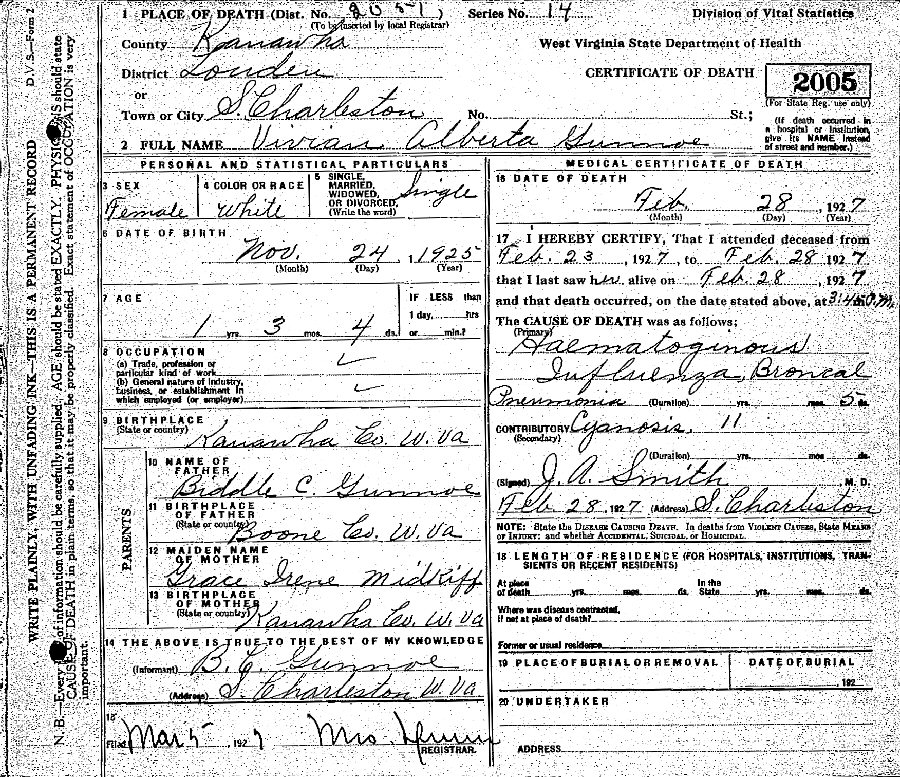 1 PLACE OF DEATH (Dist. No. 2051) Series No. 14 Division of Vital Statistics
(To be inserted by local Registrar)
County Kanawha West Virginia State Department of Health
District Louden CERTIFICATE OF DEATH 2005
or (For State Reg. use only)
Town or City S. Charleston No. St.;
(If death occurred in a hospital or institution, give its NAME instead of street and number.)
2 FULL NAME Vivian Alberta Gunnoe
PERSONAL AND STATISTICAL PARTICULARS
3 SEX Female
4 COLOR OR RACE White
5 SINGLE, MARRIED, WIDOWED, OR DIVORCED, (Write the word) Single
6 DATE OF BIRTH
Nov. 24, 1925
(Month) (Day) (Year)
7 AGE IF LESS than
1 day, hrs
1 yrs. 3 mos. 4 ds. or min.?
8 OCCUPATION
(a) Trade, profession or
particular kind of work
(b) General nature of industry,
business, or establishment in
which employed (or employer)
9 BIRTHPLACE
(State or country) Kanawha Co. W. Va
PARENTS
10 NAME OF FATHER
Biddle C. Gunnoe
11 BIRTHPLACE OF FATHER
(State or country) Boone Co. W. Va
12 MAIDEN NAME OF MOTHER
Grace Irene Midkiff
13 BIRTHPLACE OF MOTHER
(State or country) Kanawha Co W. Va
14 THE ABOVE IS TRUE TO THE BEST OF MY KNOWLEDGE
(Informant) B. C. Gunnoe
(Address) S. Charleston W. Va
15
Filed Mar 5 1927 Mrs.
REGISTRAR.
MEDICAL CERTIFICATE OF DEATH
16 DATE OF DEATH
Feb. 28, 1927
(Month) (Day) (Year)
17 I HEREBY CERTIFY, That I attended deceased from
Feb. 23, 1927, to Feb. 28 1927
that I last saw her alive on Feb. 28 1927
and that death occurred, on the date stated above, at
The CAUSE OF DEATH was as follows:
(Primary)
Haematoginous
Influenza, Broncal
Pneumonia (Duration) yrs. mos. 5 ds.
CONTRIBUTORY Cyanosis, 11
(Secondary)
(Duration) yrs. mos. ds.
(Signed) J. A. Smith, M. D.
Feb 28, 1927 (Address) S. Charleston
NOTE: State the DISEASE CAUSING DEATH. In deaths from VIOLENT CAUSES, State MEANS
OF INJURY: and whether ACCIDENTAL, SUICIDAL, OR HOMICIDAL.
18 LENGTH OF RESIDENCE (FOR HOSPITALS, INSTITUTIONS, TRAN-
SIENTS OR RECENT RESIDENTS)
At place In the
of death yrs. mos. ds. State yrs. mos. ds.
Where was disease contracted,
if not at place of death?
Former or usual residence
19 PLACE OF BURIAL OR REMOVAL DATE OF BURIAL
, 192
20 UNDERTAKER
ADDRESS
D. V. S.—Form 2
WRITE PLAINLY, WITH UNFADING INK—THIS IS A PERMANENT RECORD
N. B.—Every of information should be carefully supplied. AGE should be stated EXACTLY. PHYSI S should state
CAUSE OF DEATH in plain terms, so that it may be properly classified. Exact statement of OCCUPATION is very
important.